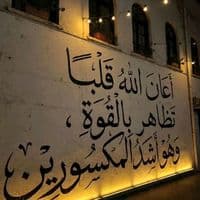 أعان الله قلبًا
تظاهر بالقوة ،
وهو أشد المكسورين